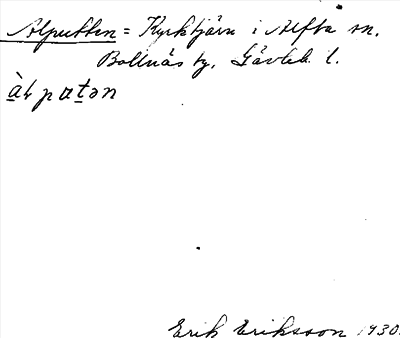 Alputten = Kyrktjärn i Alfta sn.
Bollnäs tg, Gävleb. l.
àlpatən
Erik Eriksson 1930.